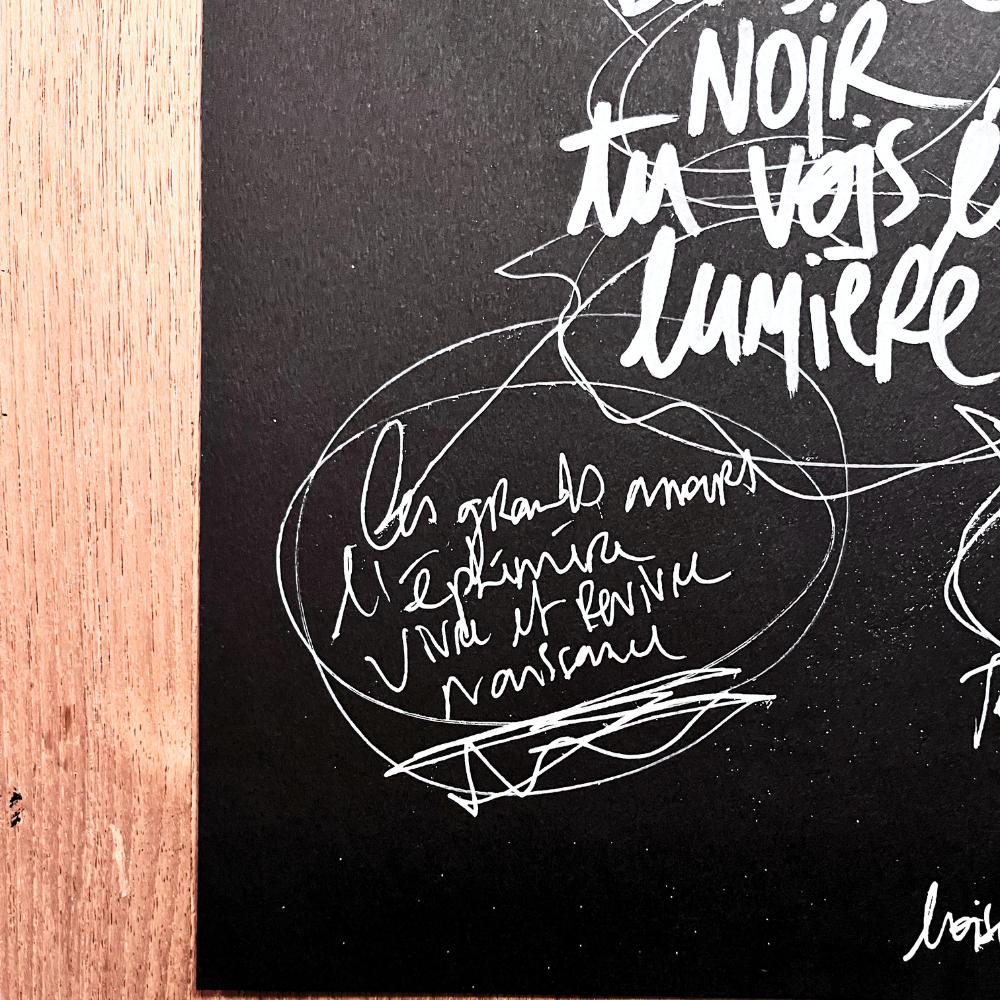 NOIR.
tu vois l
lumière
les grands amours
l'éphémère
vivre et Revivre
naissance